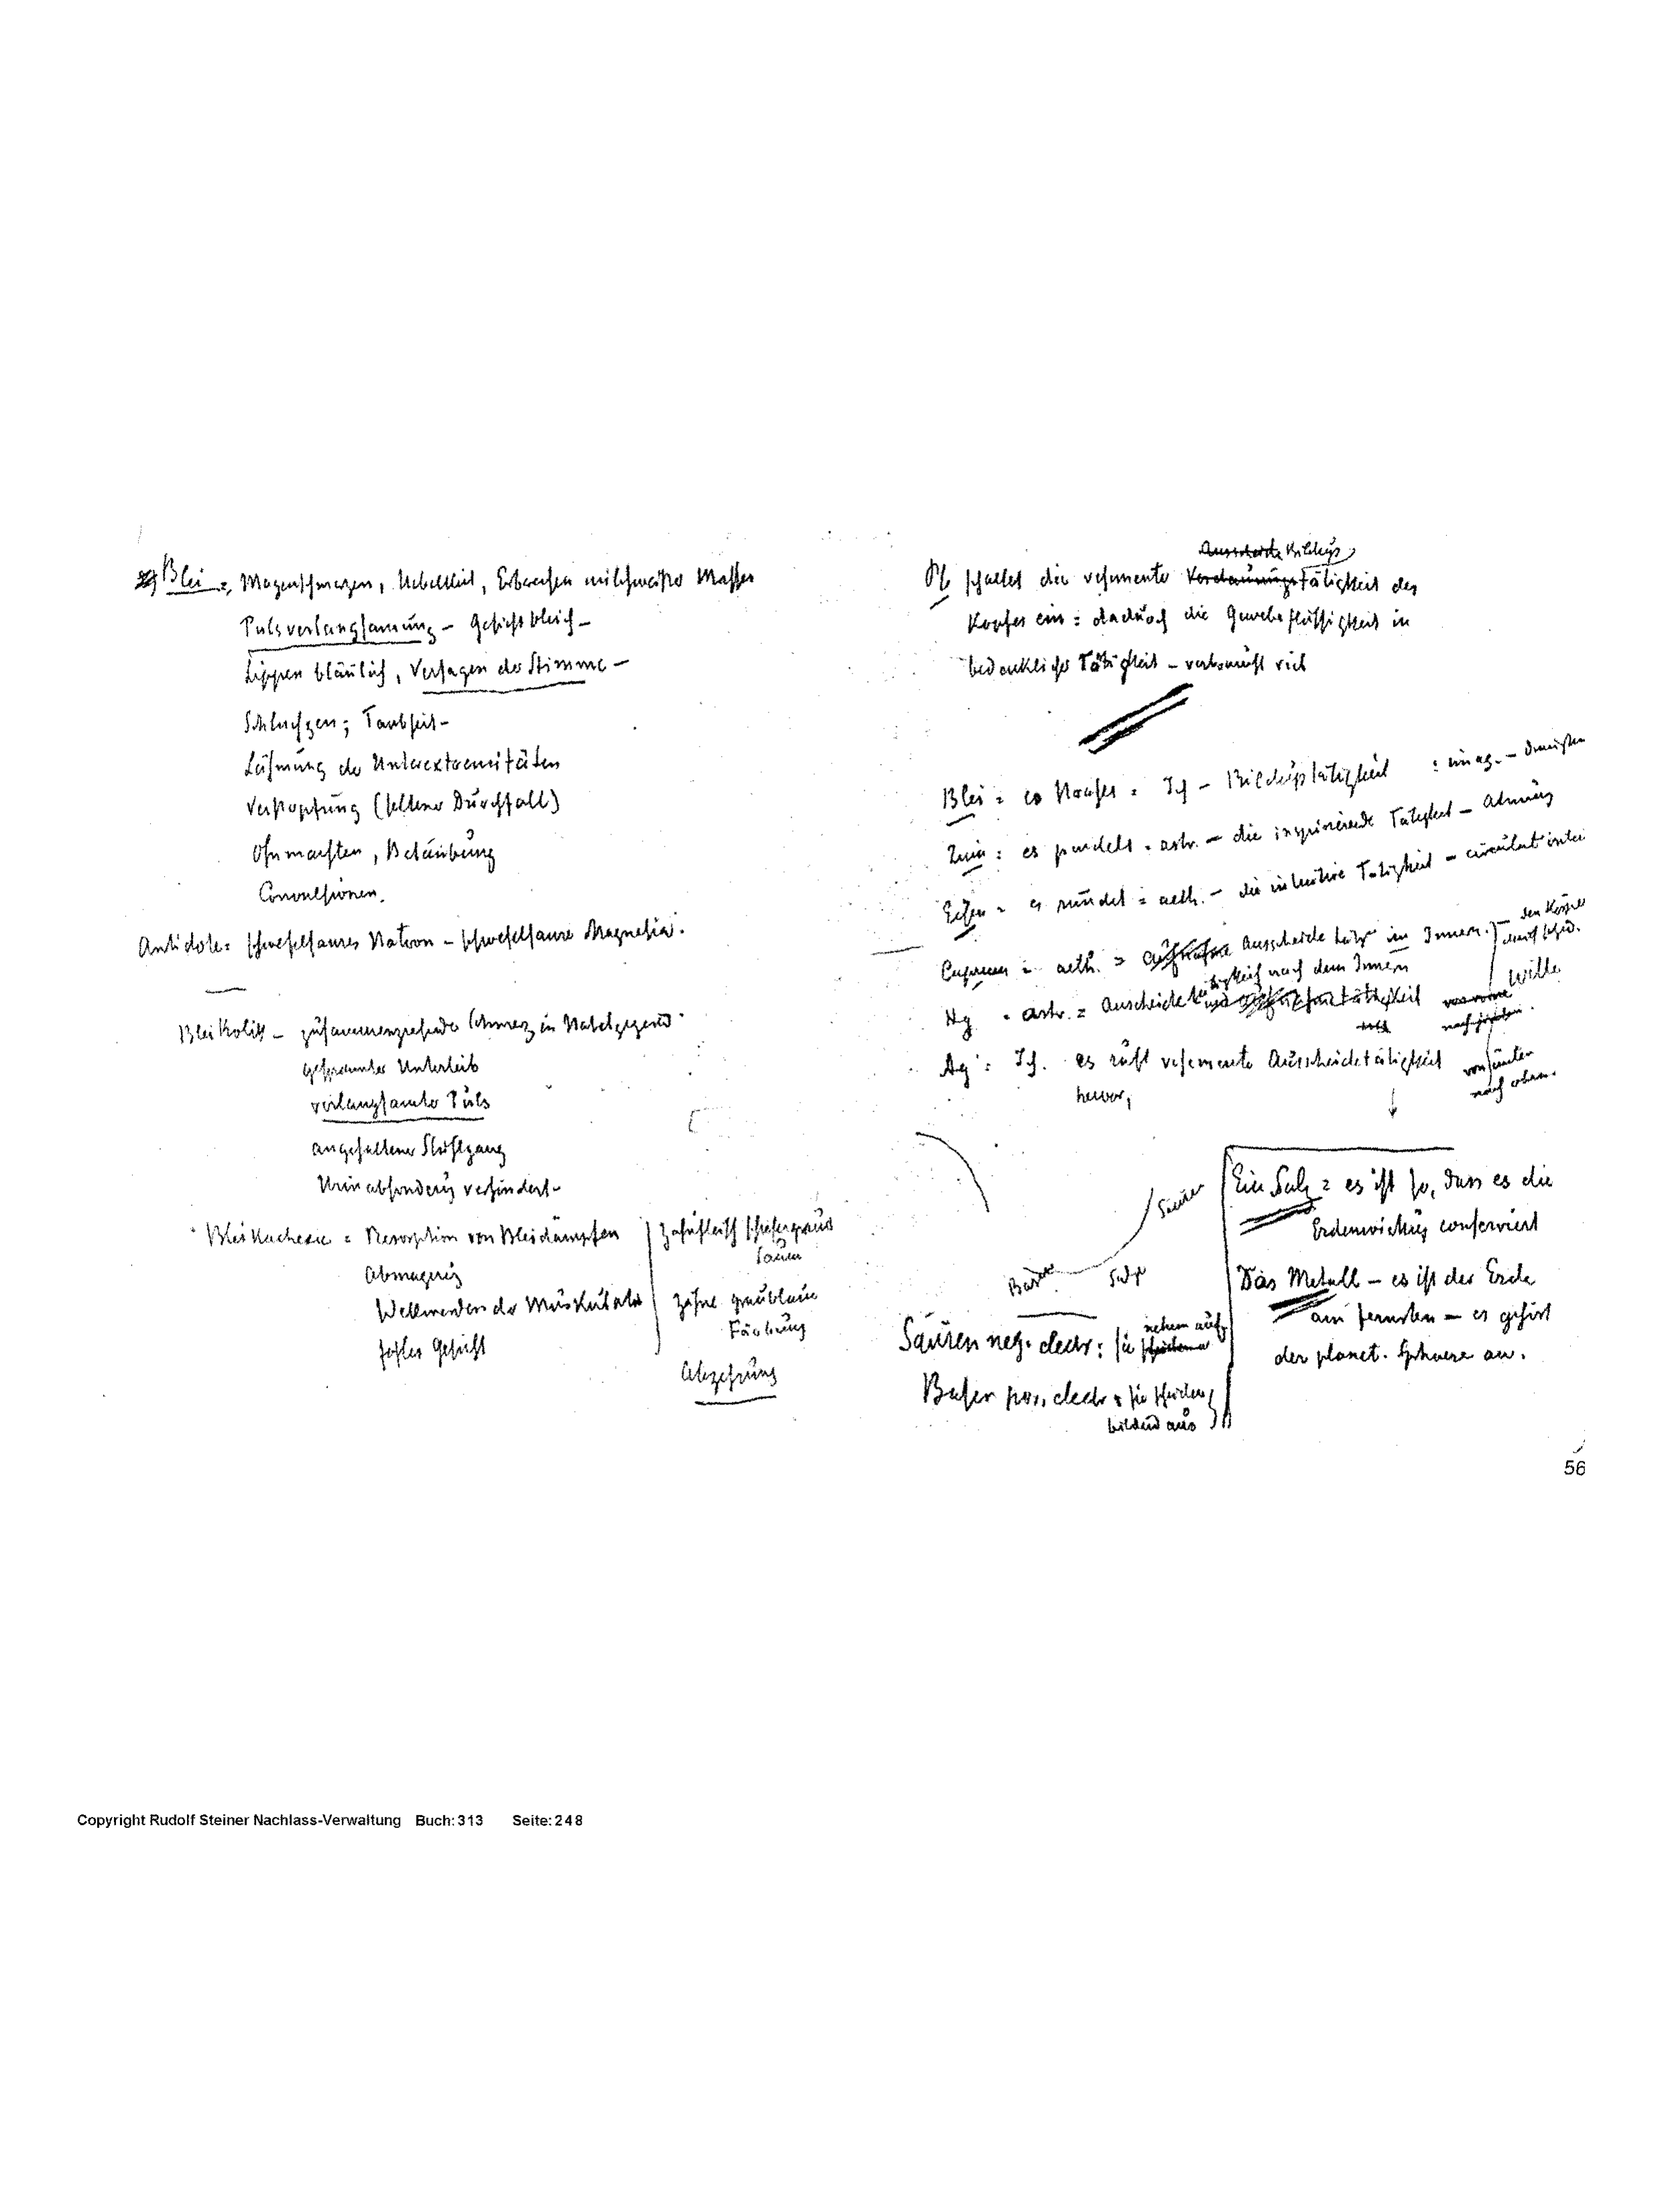 Blei =, Magenschmerzen, Uebelkeit, Erbrechen milchweißer Massen
Pulsverlangsamung – Gesicht bleich –
Lippen bläulich, Versagen der Stimme –
Schluchzen; Taubheit –
Lähmung der Unterextremitäten
Verstopfung (seltener Durchfall)
Ohnmachten, Betäubung
Convulsionen.
Antidote: schwefelsaures Natron – schwefelsaure Magnesia.
Bleikolik – zusammenziehender Schmerz in Nabelgegend
gespannter Unterleib
verlangsamter Puls
angehaltener Stuhlgang
Urinabsonderung verhindert –
Bleikachexie = Resorption von Bleidämpfen
Abmagerung
Welkwerden der Muskulatur
fahles Gesicht
Zahnfleisch schiefergrauer
Saum
Zähne graublaue
Färbung
Abzehrung
Ausscheide Bildungs
Pb schaltet die vehemente Verdauungstätigkeit des
Kopfes ein: dadurch die Gewebeflüssigkeit in
bedenklicher Tätigkeit – verbraucht sich
Blei = es = Ich – Bildungstätigkeit : imag. –
Zinn : es = astr. – die inspirierende Tätigkeit – Atmung
Eisen = es rundet = aeth. – die intuitive Tätigkeit –
Cuprum = aeth. = Ausscheidetätigk. im Innern. – den Körper
durchscheid.
tätigkeit nach dem Innern
Hg = astr. = Ausscheide Wille
Ag : Ich. es ruft vehemente Ausscheidetätigkeit von unten
hervor, nach oben.
Säuren
Basen Salze
Säuren neg. electr: sie nehmen auf
Basen pos. electr : sie scheiden
bildend aus
Ein Salz = es ist so, dass es die
Erdenwirkung conserviert
Das Metall – es ist der Erde
am fernsten – es gehört
der planet. Sphaere an.
56
Copyright Rudolf Steiner Nachlass-Verwaltung Buch: 313 Seite: 248